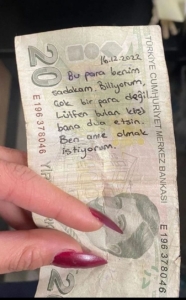 16.12.2022
Bu para benim
sadakam. Biliyorum,
çok bir para değil
Lütfen bulan kişi
bana dua etsin.
Ben anne olmak
istiyorum.
20
E196378046
TÜRKİYE CUMHURİYET MERKEZ BANKASI
E196378046
2